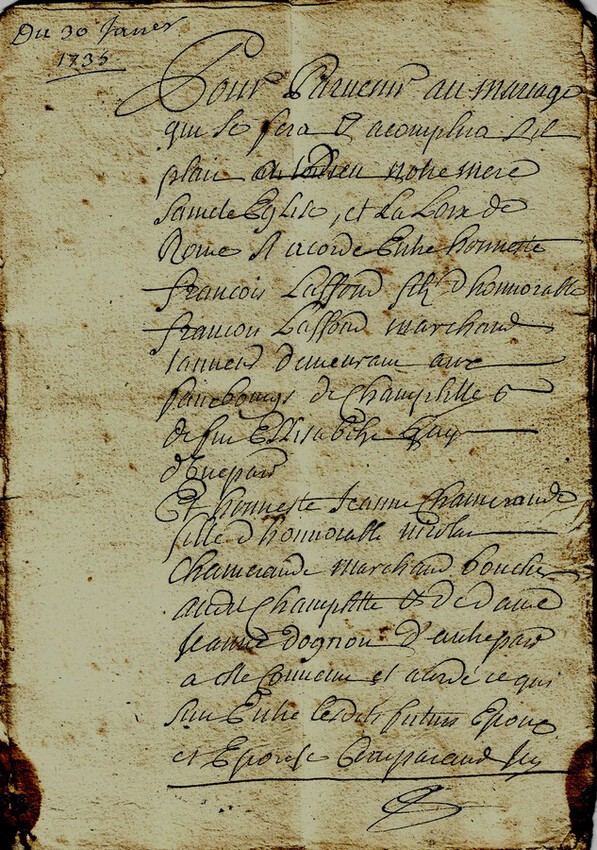 Du 30 Janer
1735
Pour Parvenir au mariage
qui se fera & acomplira sil
plait a Dieu notre mere
saincte Eglise, et La Loix de
Rome Il acorde Entre honneste
francois Laffond fils d'honnorable
francois Laffond marchand
tanneur demeurant aux
faucbourgs de Champlitte &
de fue Ellisabethe
d'Unepart
Et honneste Jeanne Chamerande
fille d'honnorable nicolas
Chamerande marchand boucher
audit Champlitte & de dame
Jeanne dognon D'autrepart
a este Convenu et acorde ce qui
suit Entre lesdits futurs Epoux
et Epouse Comparand